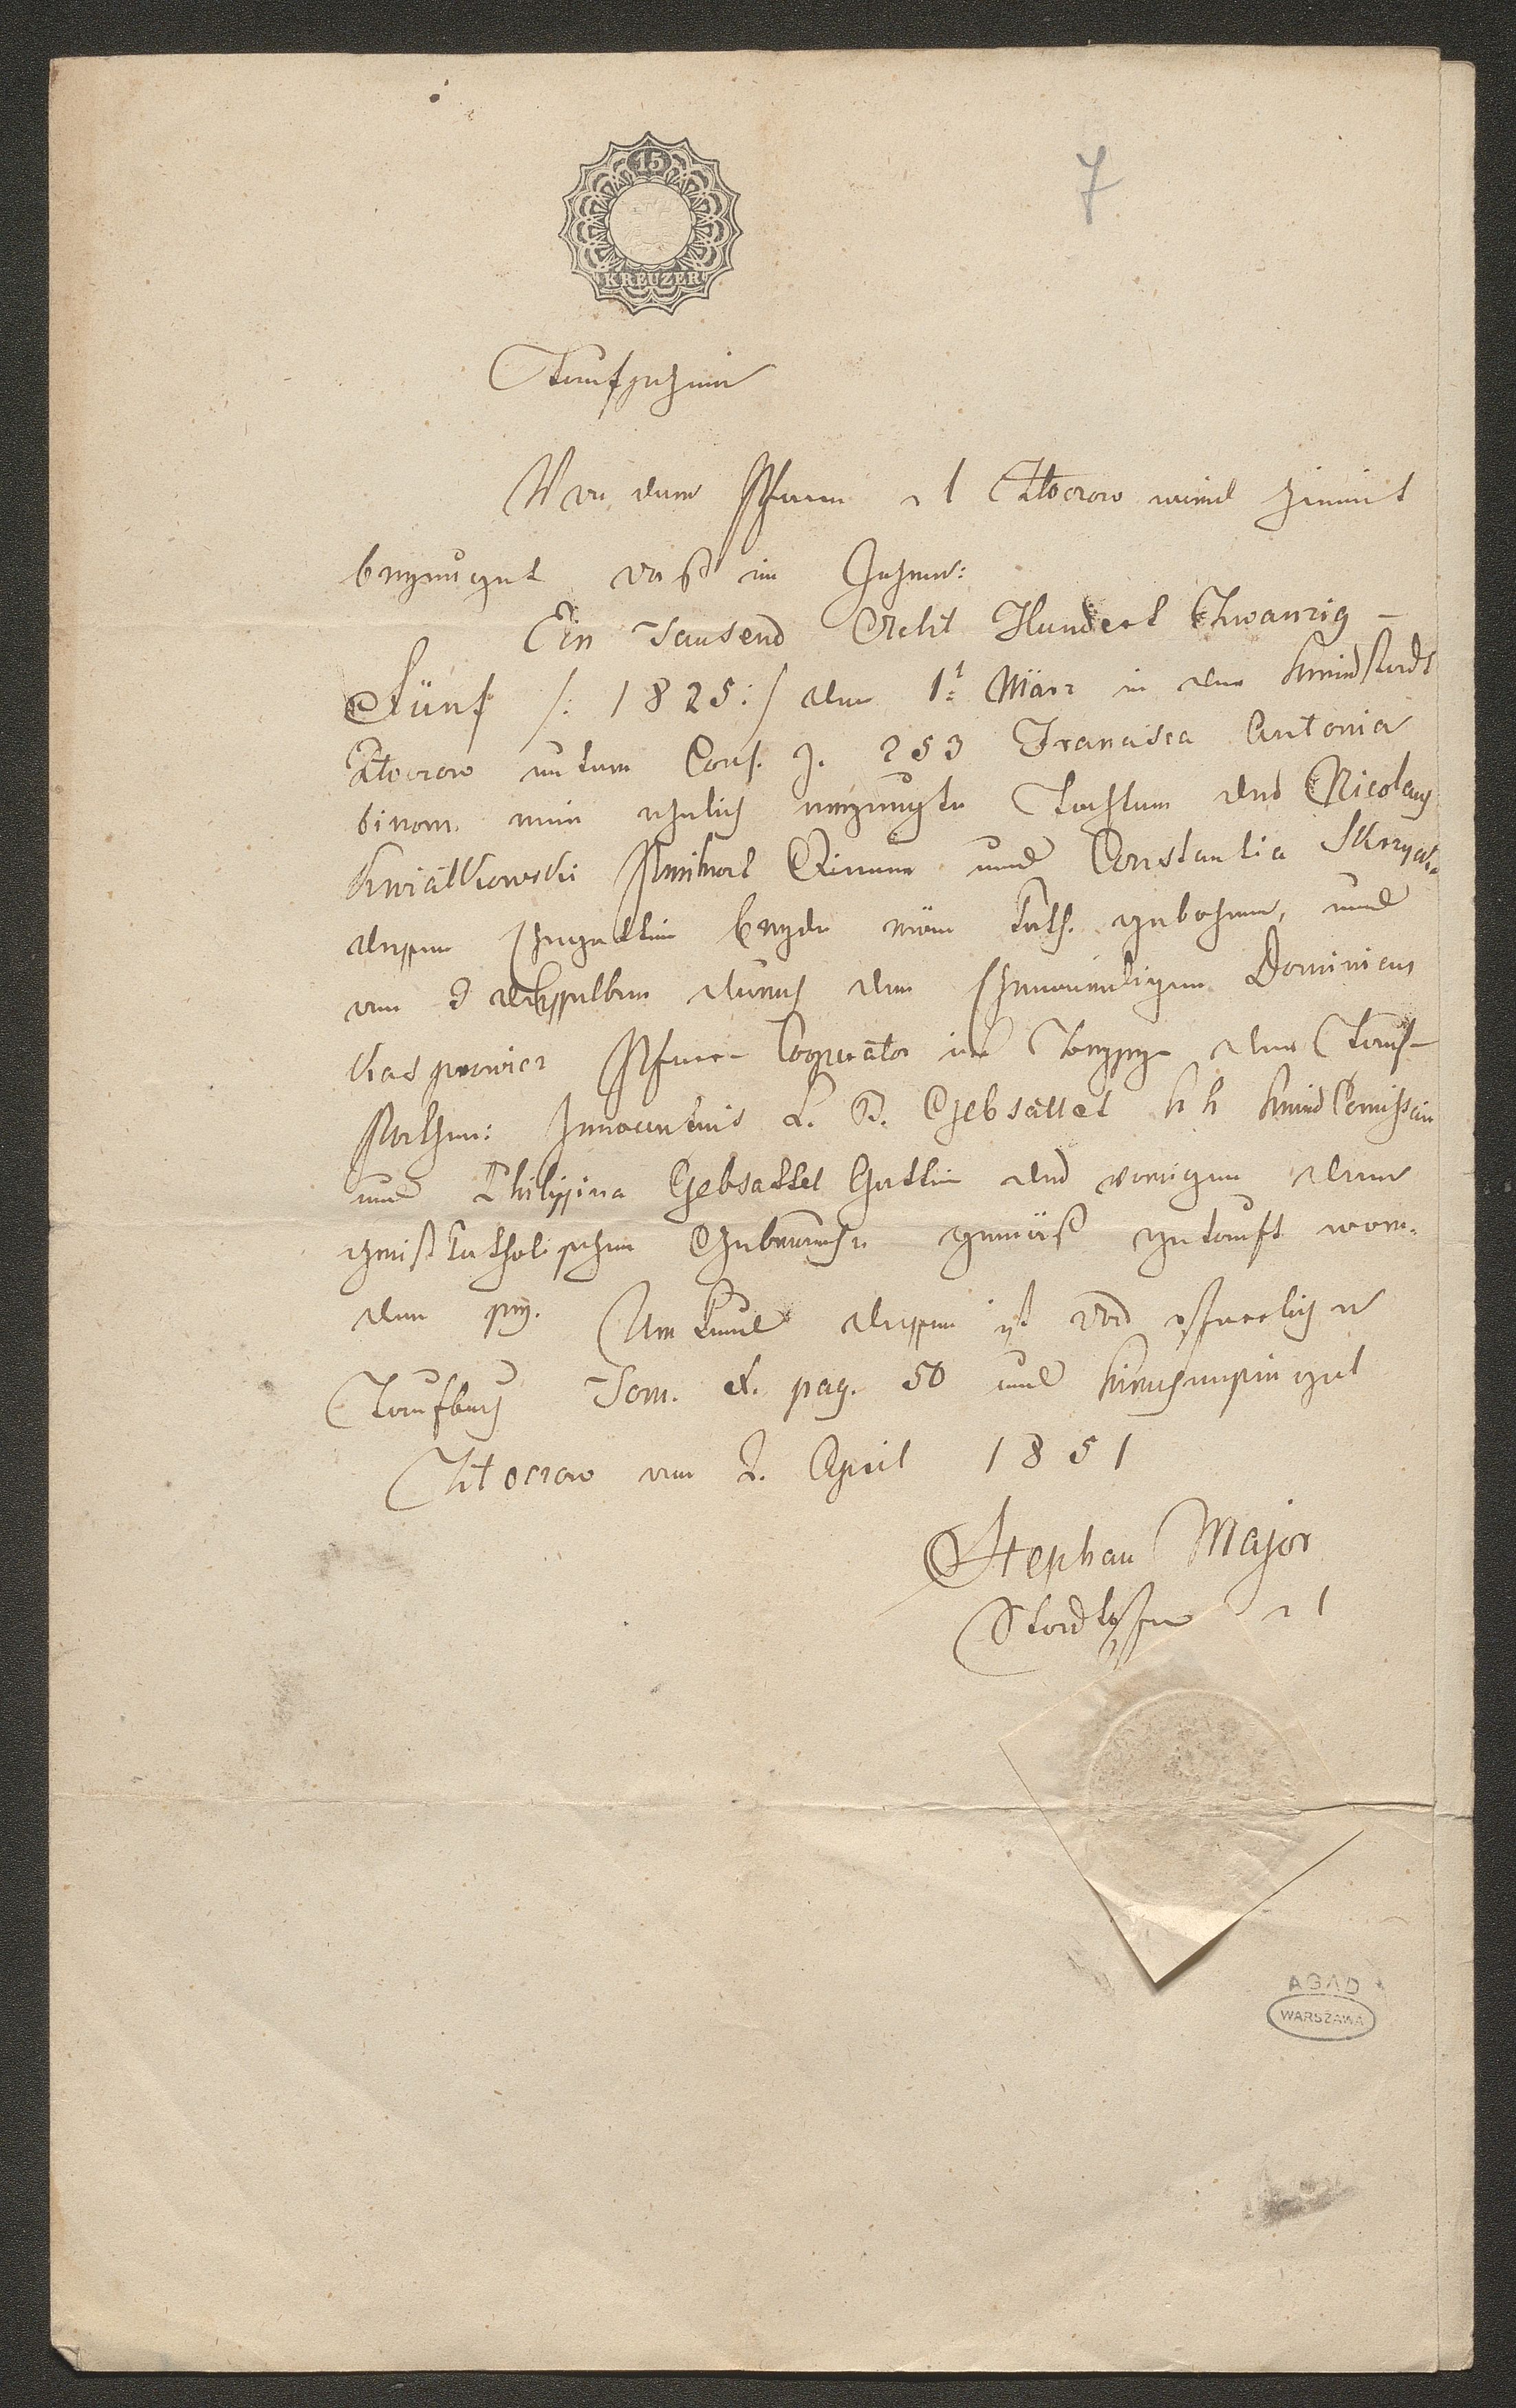 7
15
KREUZER
Taufschein
Von dem Pfarrer r l Złoczow wird hiemit
bezeuget daß im Jahre:
Ein Tausend Acht Hundert Zwanzig –
Fünf /: 1825 :/ den 1t März in der Kreisstadt
Złoczow unterm Cons. Z. 253 Francisca Antonia
binom. eine ehelich erzeugte Tochter des Nicolaus
Kwiatkowski Privat und Constantia
dessen Ehegattin beyde röm kath. gebohren, und
am d desselben durch den Ehrwürdigen Dominicus
Kasprowicz Pfarr Cooperator in Beyseyn der Tauf-
pathen: Innocentius L. B. Gebsattel k k KreisComissär
und Philippina Gebsattel Gattin des vorigen dem
christkatholischen Gebrauche gemäß getauft wor-
den sey. Urkund dessen ist das pfarrliche
Taufbuch Tom. pag. 50 und Kircheninsigel
Złoczow am 2. April 1851
Stephan Major
Stadtpfarrer r l
AGAD
WARSZAWA